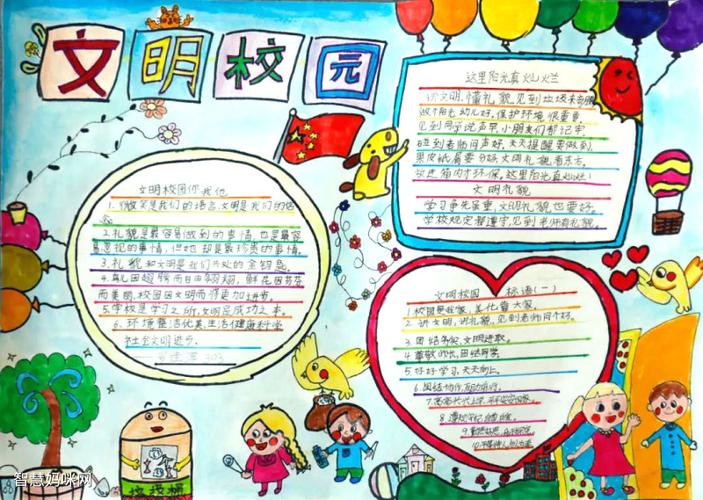 文明校园
文明校园你我他
1.微笑是我们的语言,文明是我们的信
念
2.礼貌是最容易做到的事情,也是最容
易忽视的事情,但她却是最珍贵的事情.
3.礼貌和文明是我们共处的金钥匙.
4.鸟儿因翅膀而自由翱翔,鲜花因芬芳
而美丽,校园因文明而将更加进步.
5.学校是学习之所,文明是成功之本.
6.环境整洁优美,生活健康科学
社会文明进步.
这里阳光真灿烂
讲文明,懂礼貌,见到垃圾
做个阳光幼儿好,保护环境很重要,
见到同学说声早,小朋友们都记牢,
碰到老师问声好,天天提醒要做到.
果皮纸屑要分好,文明礼貌看东方,
这里阳光真灿烂!
文明礼貌
学习争先荣重,文明礼貌也要好.
学校规定都遵守,见到老师有礼貌.
文明校园 标语(一)
1.校园是我家,美化靠大家.
2.讲文明,讲礼貌,见到老师问个好.
3.团结务实,文明进取.
4.尊敬师长,团结同学.
5.好好学习,天天向上.
6.团结协作,互助互行.
垃圾桶
智慧妈咪网